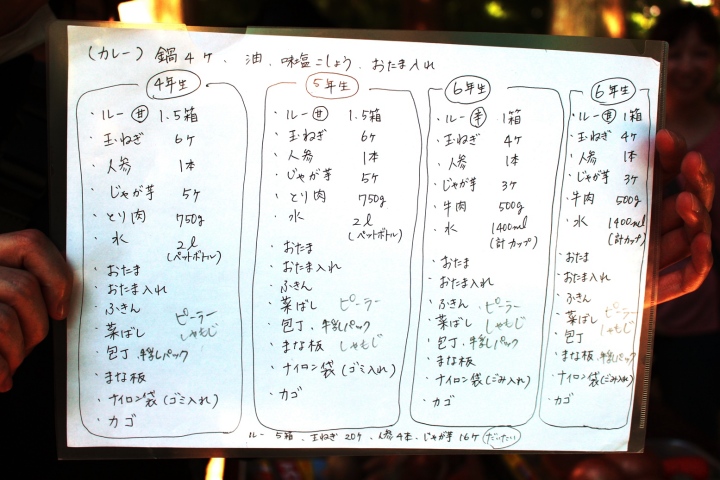 (カレー) 鍋4ケ、油、味塩こしょう、おたま入れ
4年生
・ルー 甘 1.5箱
・玉ねぎ 6ケ
・人参 1本
・じゃが芋 5ケ
・とり肉 750g
・水 2ℓ
(ペットボトル)
・おたま
・おたま入れ
・ふきん ピーラー
・菜ばし しゃもじ
・包丁、牛乳パック
・まな板
・ナイロン袋(ゴミ入れ)
・カゴ
5年生
・ルー 甘 1.5箱
・玉ねぎ 6ケ
・人参 1本
・じゃが芋 5ケ
・とり肉 750g
・水 2ℓ
(ペットボトル)
・おたま
・おたま入れ
・ふきん
・菜ばし ピーラー
・包丁、牛乳パック
・まな板 しゃもじ
・ナイロン袋(ゴミ入れ)
・カゴ
6年生
・ルー 辛 1箱
・玉ねぎ 4ケ
・人参 1本
・じゃが芋 3ケ
・牛肉 500g
・水 1400ml
(計カップ)
・おたま
・おたま入れ
・ふきん ピーラー
・菜ばし しゃもじ
・包丁、牛乳パック
・まな板
・ナイロン袋(ごみ入れ)
・カゴ
6年生
・ルー 甘 1箱
・玉ねぎ 4ケ
・人参 1本
・じゃが芋 3ケ
・牛肉 500g
・水 1400ml
(計カップ)
・おたま
・おたま入れ
・ふきん
・菜ばし ピーラー
・包丁 しゃもじ
・まな板、牛乳パック
・ナイロン袋(ごみ入れ)
・カゴ
ルー 5箱、玉ねぎ 20ケ、人参 4本、じゃが芋 16ケ だいたい